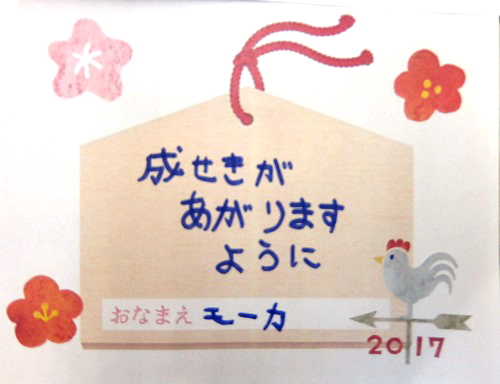 成せきが
あがります
ように
おなまえ モーカ
2017